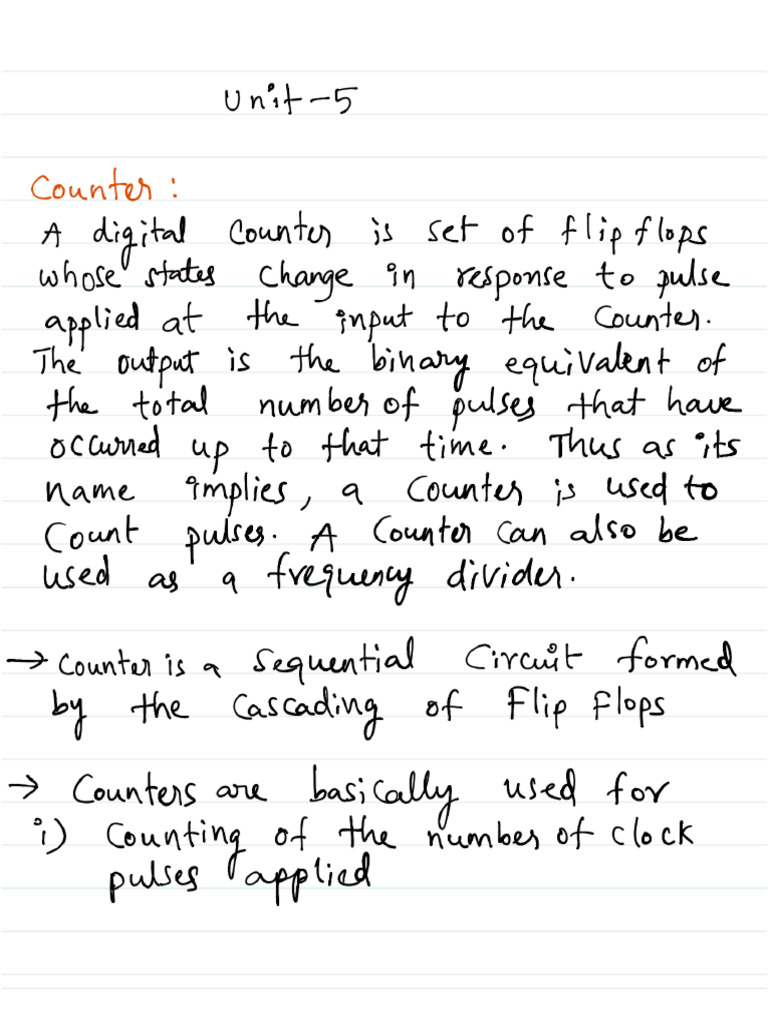 Unit-5
Counter:
A digital Counter is set of flip flops
whose states change in response to pulse
applied at the input to the Counter.
The output is the binary equivalent of
the total number of pulses that have
occurred up to that time. Thus as its
name implies, a Counter is used to
Count pulses. A Counter can also be
used as a frequency divider.
→ Counter is a Sequential Circuit formed
by the Cascading of Flip Flops
→ Counters are basically used for
i) Counting of the number of clock
pulses applied